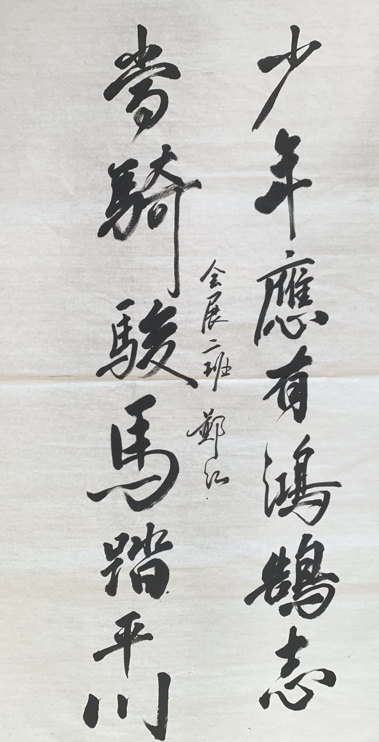 少年應有鴻鵠志
當騎駿馬踏平川
会展二班 鄭江